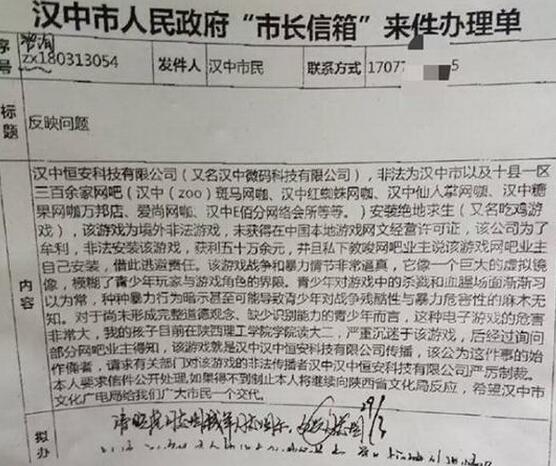 汉中市人民政府“市长信箱”来件办理单
序号
咨询
zx180313054
发件人
汉中市民
联系方式
1707
5
标题
反映问题
内容
汉中恒安科技有限公司（又名汉中微码科技有限公司），非法为汉中市以及十县一区
三百余家网吧（汉中（zoo）斑马网咖、汉中红蜘蛛网咖、汉中仙人掌网咖、汉中糖
果网咖万邦店、爱尚网咖、汉中E佰分网络会所等等。）安装绝地求生（又名吃鸡游
戏），该游戏为境外非法游戏，未获得在中国本地游戏网文经营许可证，该公司为了
牟利，非法安装该游戏，获利五十万余元，并且私下教唆网吧业主说该游戏网吧业主
自己安装，借此逃避责任。该游戏战争和暴力情节非常逼真，它像一个巨大的虚拟镜
像，模糊了青少年玩家与游戏角色的界限。青少年对游戏中的杀戮和血腥场面渐渐习
以为常，种种暴力行为暗示甚至可能导致青少年对战争残酷性与暴力危害性的麻木无
知。对于尚未形成完整道德观念、缺少识别能力的青少年而言，这种电子游戏的危害
非常大，我的孩子目前在陕西理工学院学院读大二，严重沉迷于该游戏，后经过询问
部分网吧业主得知，该游戏就是汉中汉中恒安科技有限公司传播，该公为这件事的始
作俑者，请求有关部门对该游戏的非法传播者汉中汉中恒安科技有限公司严厉制裁。
本人要求信件公开处理，如果得不到制止本人将继续向陕西省文化局反应，希望汉中市
文化广电局给我们广大市民一个交代。
拟办